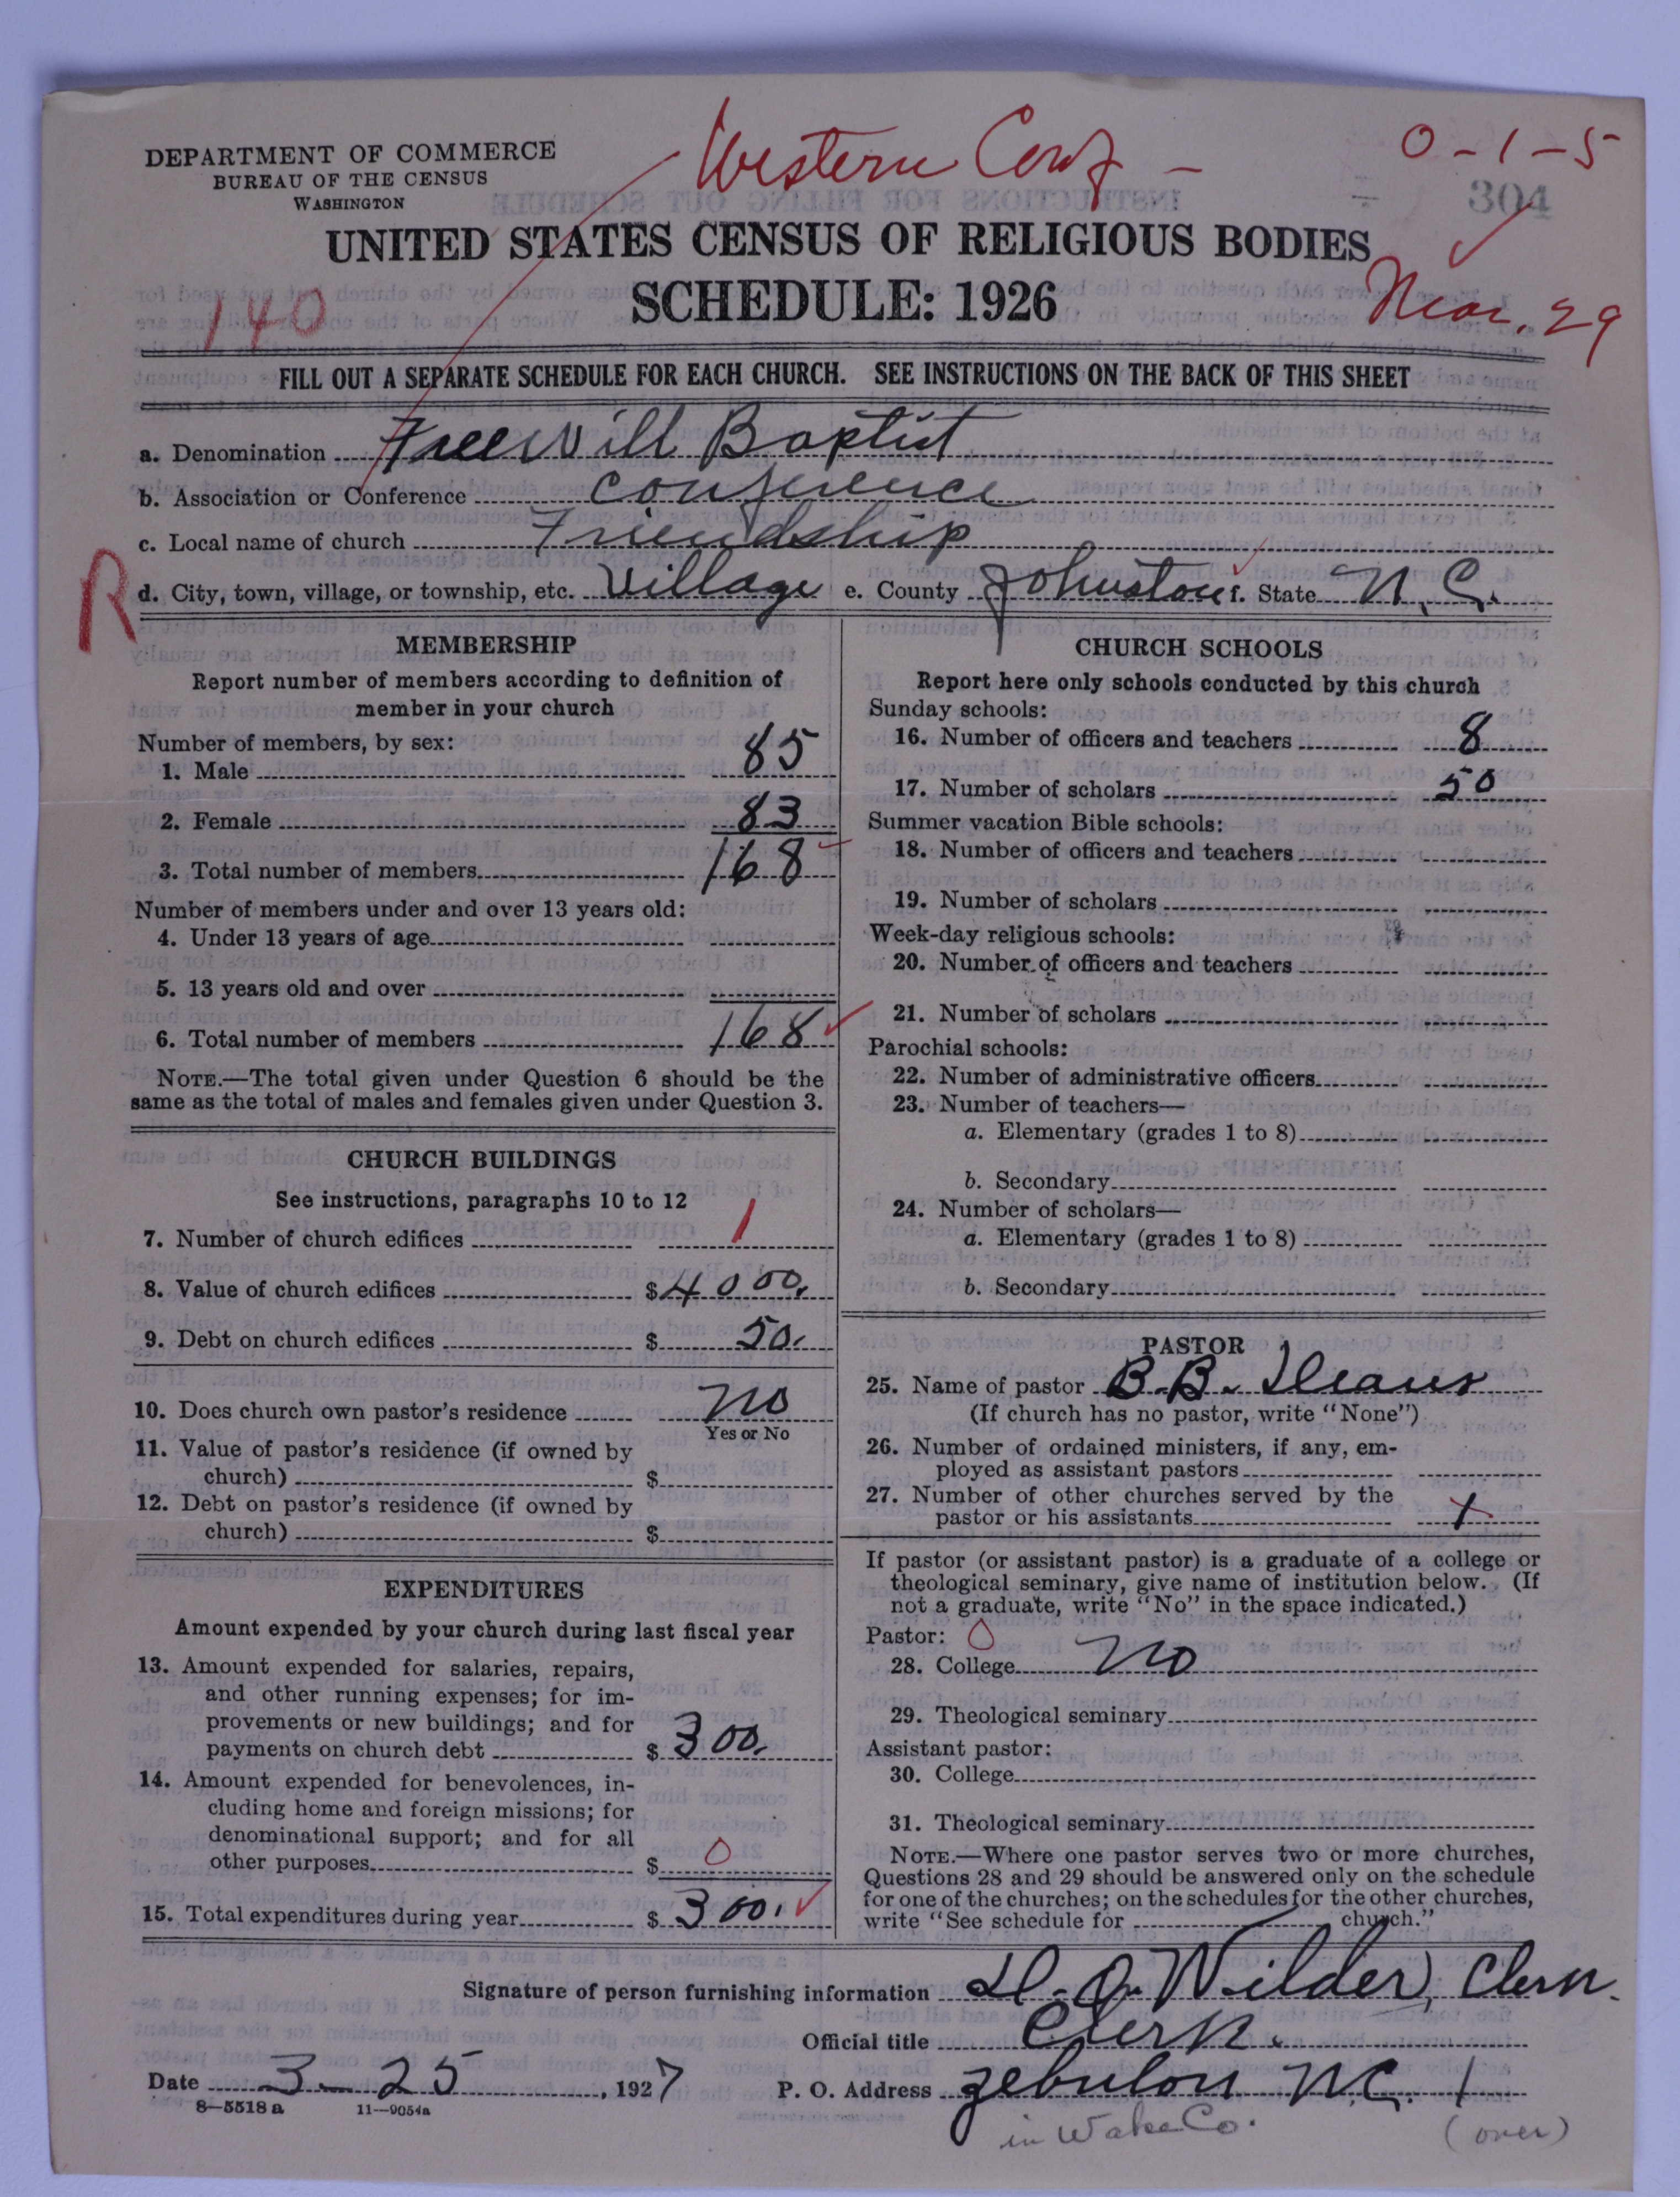 Western Conf -
0-1-5
DEPARTMENT OF COMMERCE
BUREAU OF THE CENSUS
WASHINGTON
304
UNITED STATES CENSUS OF RELIGIOUS BODIES
SCHEDULE: 1926
140
Mar. 29
FILL OUT A SEPARATE SCHEDULE FOR EACH CHURCH. SEE INSTRUCTIONS ON THE BACK OF THIS SHEET
a. Denomination Free Will Baptist
b. Association or Conference Conference
c. Local name of church Friendship
R
d. City, town, village, or township, etc. Village e. County Johnston f. State N.C.
MEMBERSHIP
Report number of members according to definition of
member in your church
Number of members, by sex:
1. Male 85
2. Female 83
3. Total number of members 168
Number of members under and over 13 years old:
4. Under 13 years of age
5. 13 years old and over
6. Total number of members 168
NOTE.—The total given under Question 6 should be the
same as the total of males and females given under Question 3.
CHURCH BUILDINGS
See instructions, paragraphs 10 to 12
7. Number of church edifices 1
8. Value of church edifices $4000.
9. Debt on church edifices $ 50.
10. Does church own pastor's residence no
Yes or No
11. Value of pastor's residence (if owned by
church) $
12. Debt on pastor's residence (if owned by
church) $
EXPENDITURES
Amount expended by your church during last fiscal year
13. Amount expended for salaries, repairs,
and other running expenses; for im-
provements or new buildings; and for
payments on church debt $ 300.
14. Amount expended for benevolences, in-
cluding home and foreign missions; for
denominational support; and for all
other purposes $ 0
15. Total expenditures during year $ 300.
CHURCH SCHOOLS
Report here only schools conducted by this church
Sunday schools:
16. Number of officers and teachers 8
17. Number of scholars 50
Summer vacation Bible schools:
18. Number of officers and teachers
19. Number of scholars
Week-day religious schools:
20. Number of officers and teachers
21. Number of scholars
Parochial schools:
22. Number of administrative officers
23. Number of teachers—
a. Elementary (grades 1 to 8)
b. Secondary
24. Number of scholars—
a. Elementary (grades 1 to 8)
b. Secondary
PASTOR
25. Name of pastor B.B. Deans
(If church has no pastor, write "None")
26. Number of ordained ministers, if any, em-
ployed as assistant pastors
27. Number of other churches served by the
pastor or his assistants 1
If pastor (or assistant pastor) is a graduate of a college or
theological seminary, give name of institution below. (If
not a graduate, write "No" in the space indicated.)
Pastor: 0
28. College no
29. Theological seminary
Assistant pastor:
30. College
31. Theological seminary
NOTE.—Where one pastor serves two or more churches,
Questions 28 and 29 should be answered only on the schedule
for one of the churches; on the schedules for the other churches,
write "See schedule for church."
Signature of person furnishing information Wilder, Clerk.
Official title Clerk.
Date 3-25, 1927 P. O. Address Zebulon N.C. 1
8—5518 a 11—9054a
in Wake Co. (over)